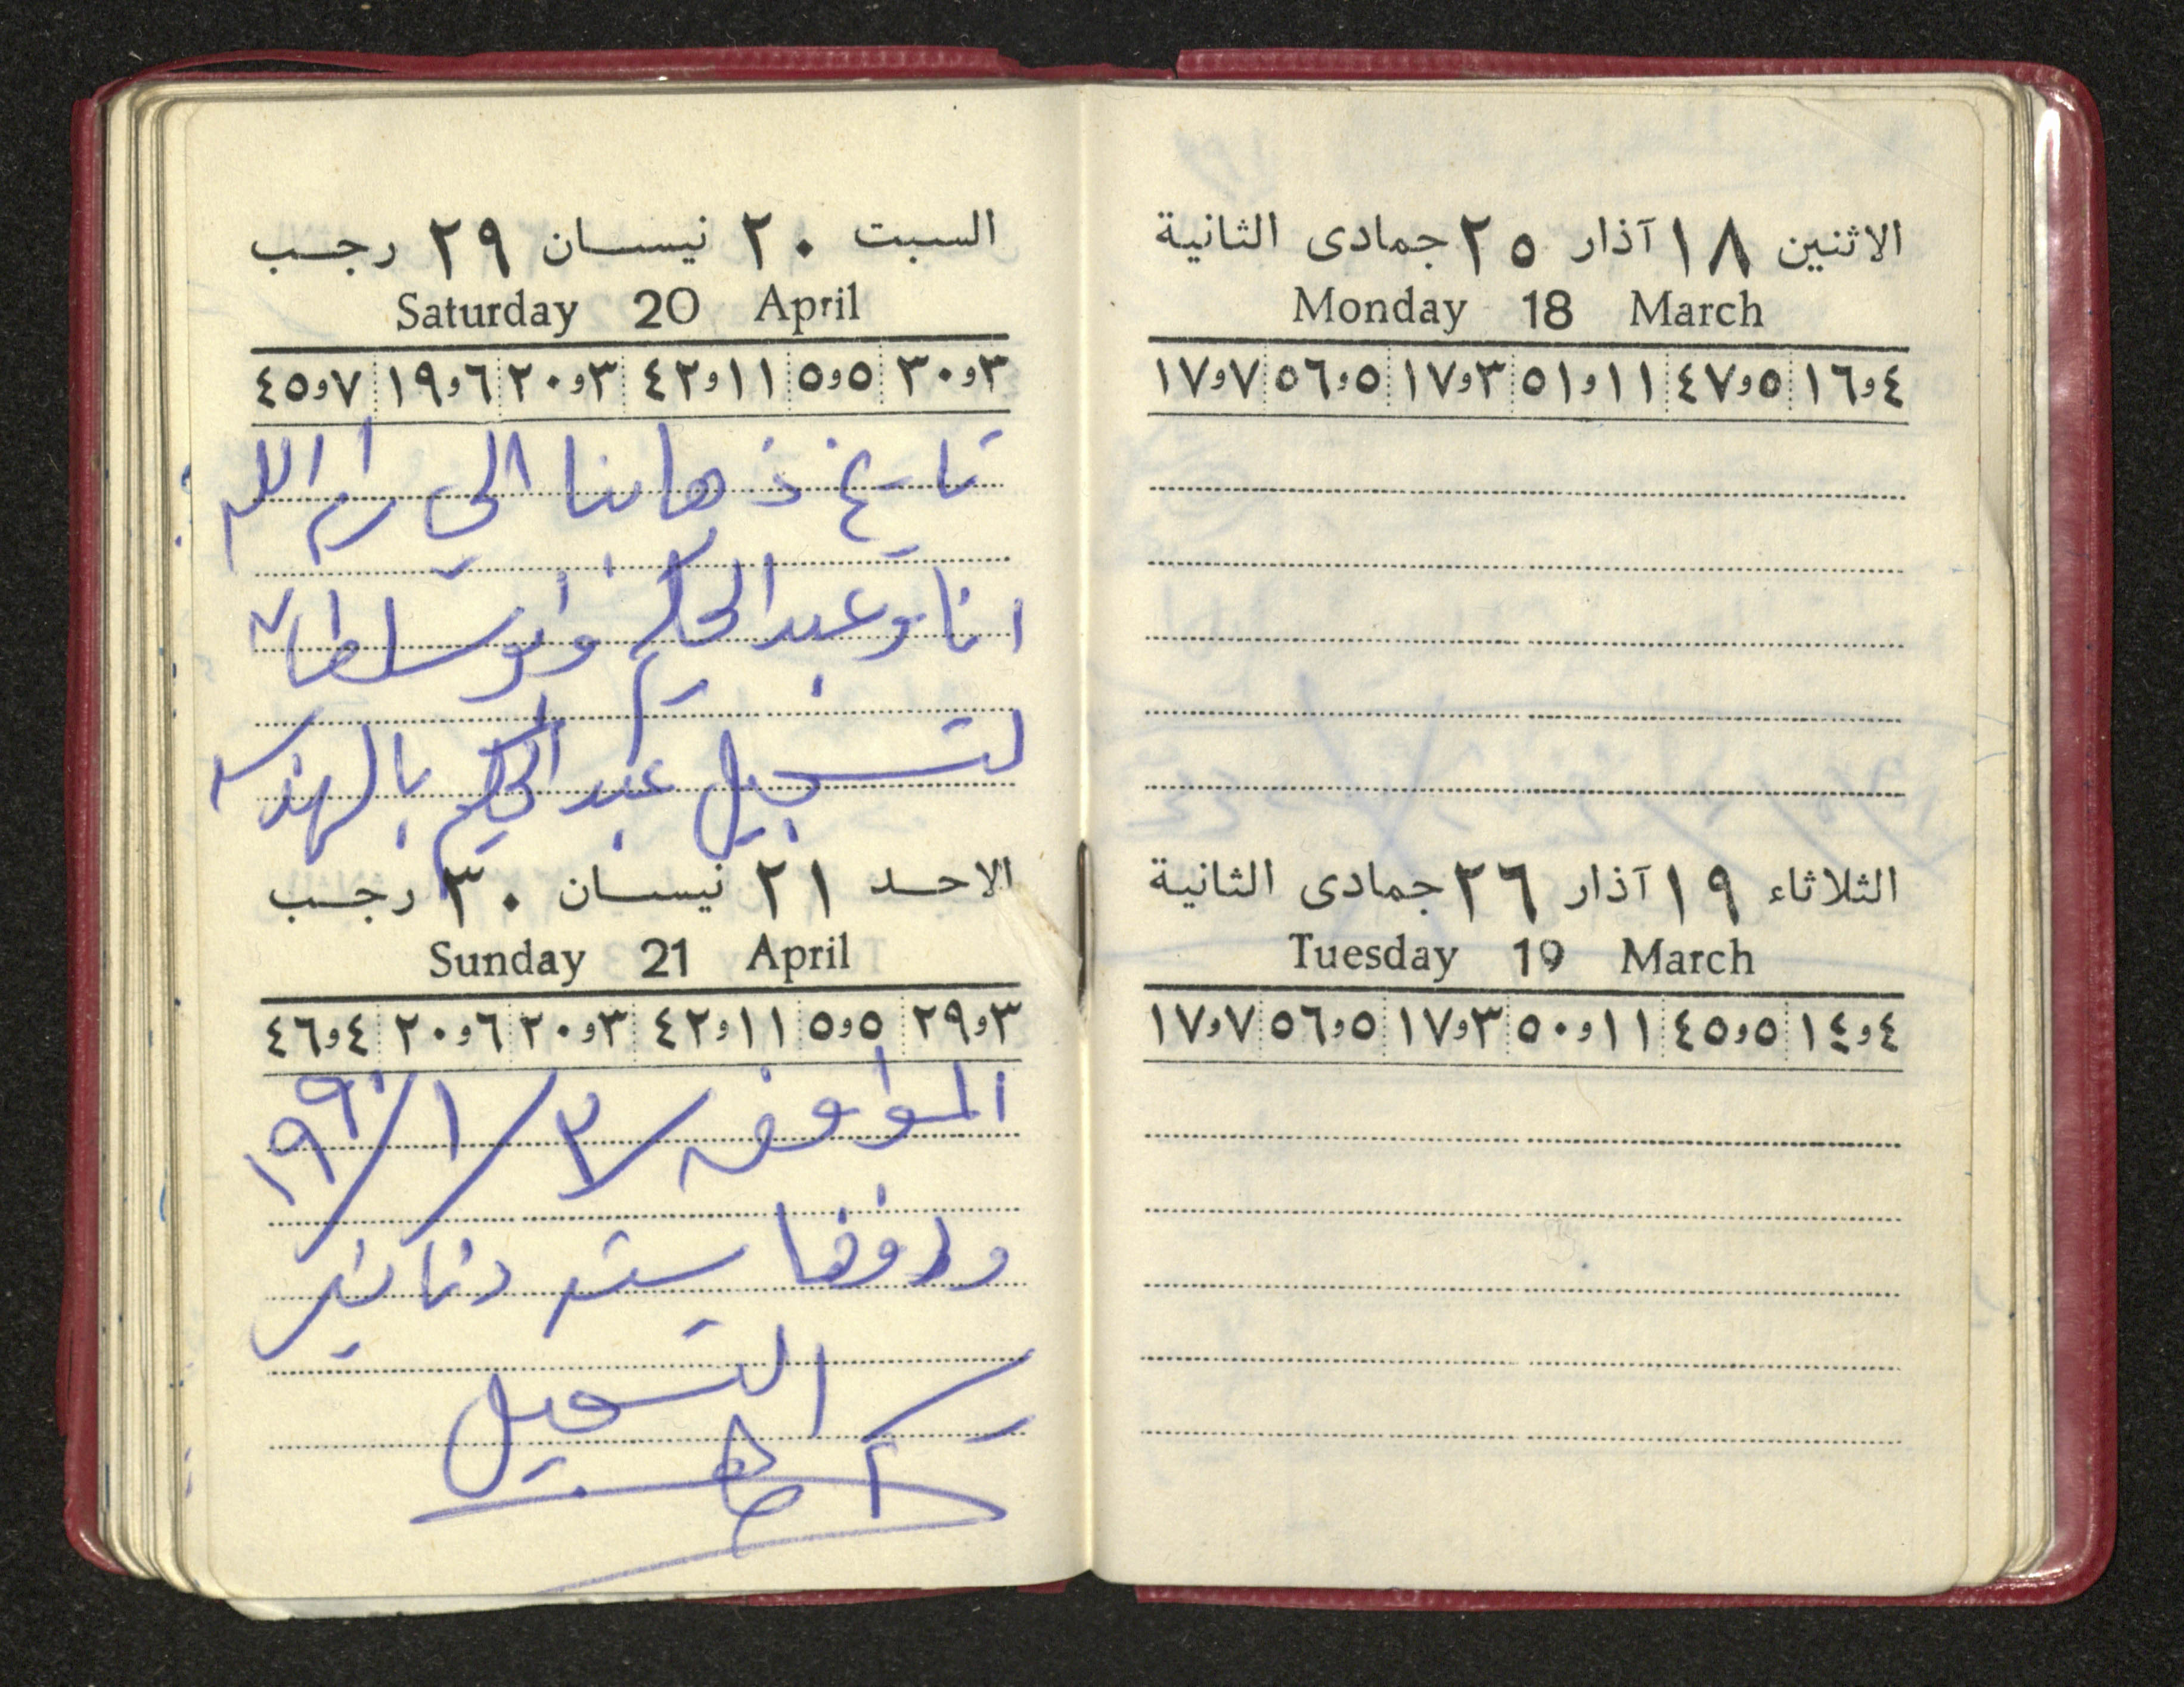 السبت ٢٠ نيسان ٢٩ رجب
Saturday 20 April
٣و٣٠ ٥و٥ ١١و٤٢ ٣و٢٠ ٦و١٩ ٧و٤٥
تاريخ ذهابنا الى رام الله
انا وعبد الحكيم وابو سلطان
لتسجيل عبد الحكيم بالهندسة
الاحد ٢١ نيسان ٣٠ رجب
Sunday 21 April
٣و٢٩ ٥و٥ ١١و٤٢ ٣و٢٠ ٦و٢٠ ٤و٤٦
الموافق ٣/١/١٩٩٠
ودفعنا ستة دنانير
التسجيل
الاثنين ١٨ آذار ٢٥ جمادى الثانية
Monday 18 March
٤و١٦ ٥و٤٧ ١١و٥١ ٣و١٧ ٥و٥٦ ٧و١٧
الثلاثاء ١٩ آذار ٢٦ جمادى الثانية
Tuesday 19 March
٤و١٤ ٥و٤٥ ١١و٥٠ ٣و١٧ ٥و٥٦ ٧و١٧